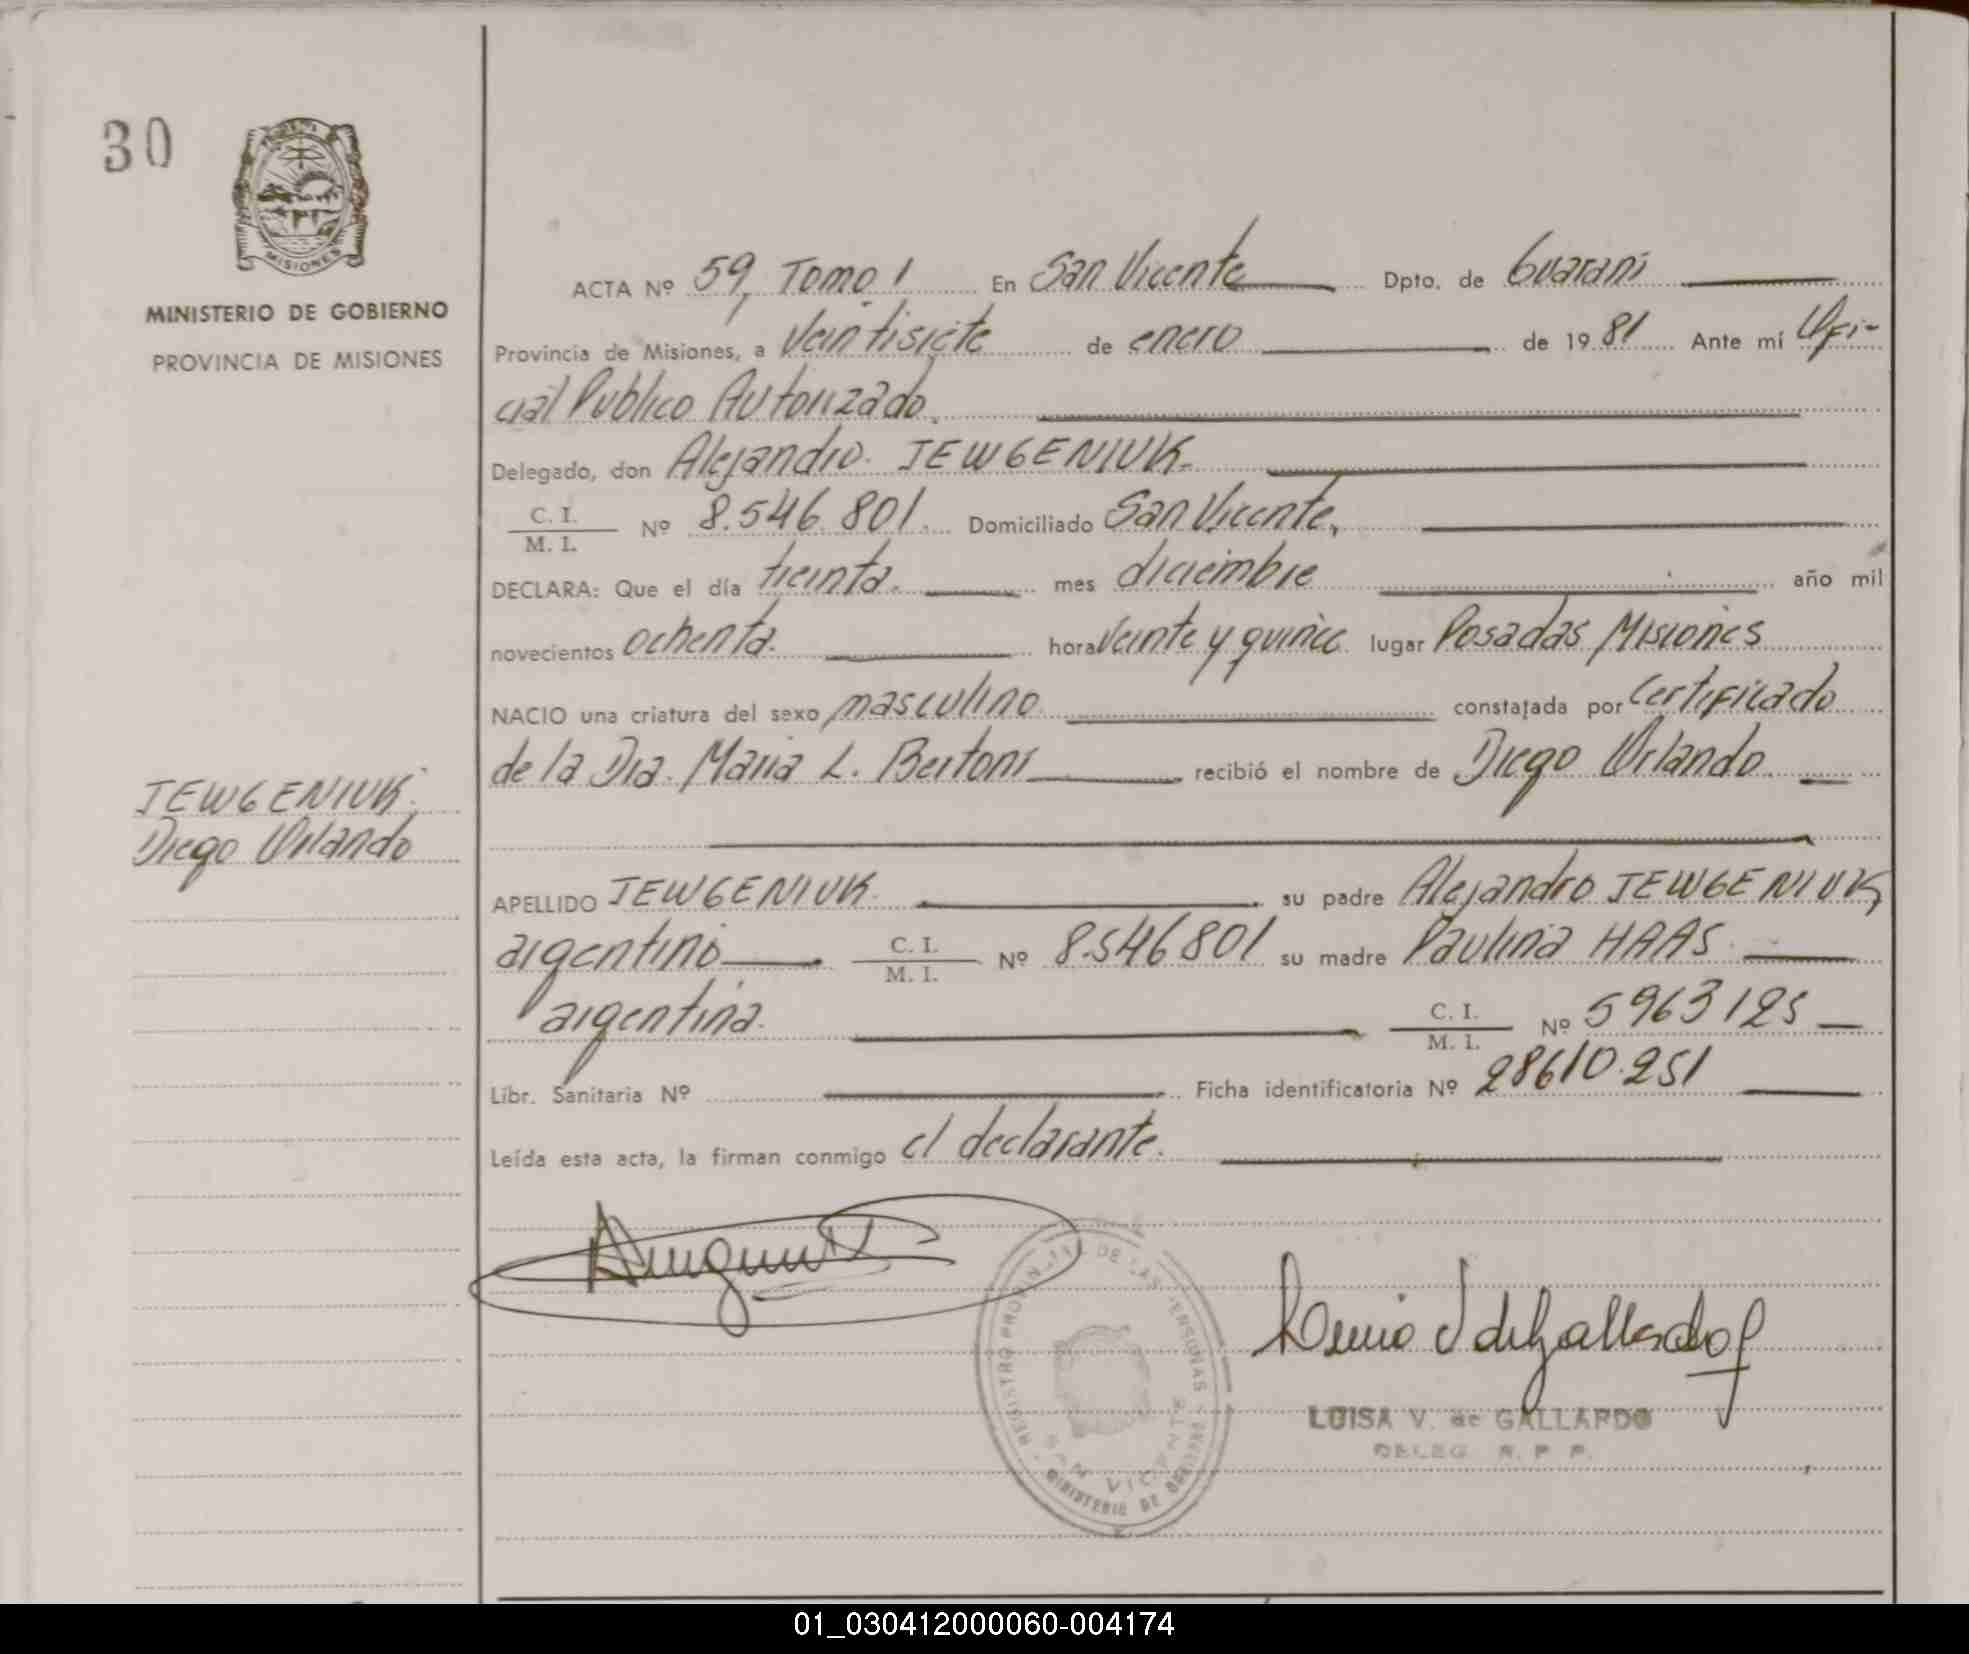 30
MISIONES
MINISTERIO DE GOBIERNO
PROVINCIA DE MISIONES
JEWGENIUK
Diego Orlando
ACTA Nº 59, Tomo 1 En San Vicente Dpto. de Guarani
Provincia de Misiones, a Veintisiete de enero de 1981 Ante mí Ofi-
cial Publico Autorizado.
Delegado, don Alejandro JEWGENIUK
C. I. / M. I. Nº 8.546.801. Domiciliado San Vicente,
DECLARA: Que el día treinta. mes diciembre año mil
novecientos ochenta. hora veinte y quince lugar Posadas Misiones
NACIO una criatura del sexo masculino constatada por Certificado
de la Dra. Maria L. Bertoni recibió el nombre de Diego Orlando
APELLIDO JEWGENIUK su padre Alejandro JEWGENIUK,
argentino C. I. / M. I. Nº 8.546801 su madre Paulina HAAS
argentina. C. I. / M. I. Nº 5963125
Libr. Sanitaria Nº Ficha identificatoria Nº 28610.251
Leída esta acta, la firman conmigo el declarante.
REGISTRO PROVINCIAL DE LAS PERSONAS
SAN VICENTE
MINISTERIO DE GOBIERNO
LUISA V. de GALLARDO
DELEG. R. P. P.
01_030412000060-004174